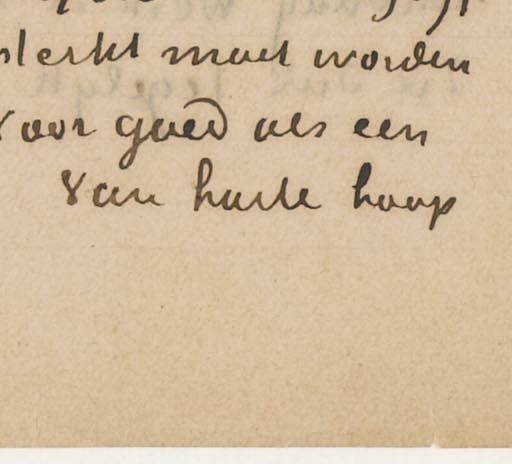 sterkt moet worden
voor goed als een
Van harte hoop